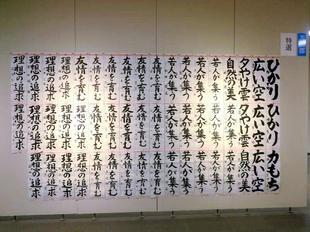 特選
ひかり
広い空
夕やけ雲
自然の美
若人が集う
若人が集う
若人が集う
友情を育む
友情を育む
友情を育む
友情を育む
理想の追求
理想の追求
理想の追求
理想の追求
ひかり
広い空
夕やけ雲
若人が集う
若人が集う
若人が集う
友情を育む
友情を育む
友情を育む
友情を育む
理想の追求
理想の追求
理想の追求
理想の追求
力もち
広い空
自然の美
若人が集う
若人が集う
若人が集う
友情を育む
友情を育む
友情を育む
友情を育む
理想の追求
理想の追求
理想の追求